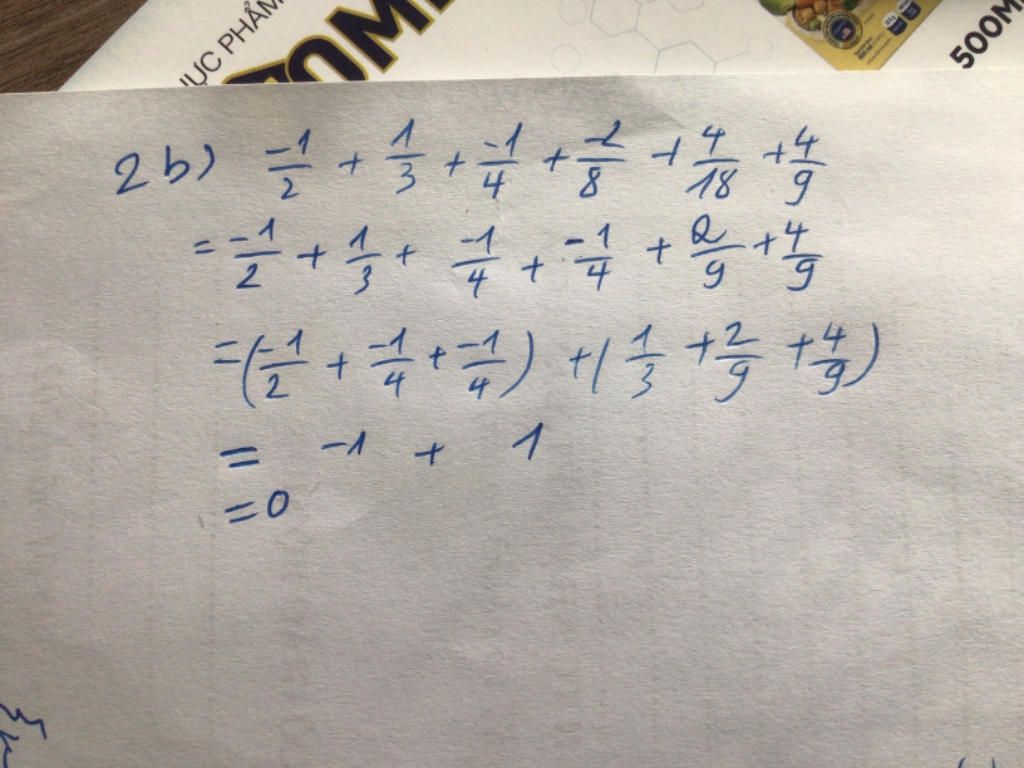 ỰC PHẨM
OM
500M
2b) -1/2 + 1/3 + -1/4 + -2/8 + 4/18 + 4/9
= -1/2 + 1/3 + -1/4 + -1/4 + 2/9 + 4/9
= (-1/2 + -1/4 + -1/4) + (1/3 + 2/9 + 4/9)
= -1 + 1
= 0